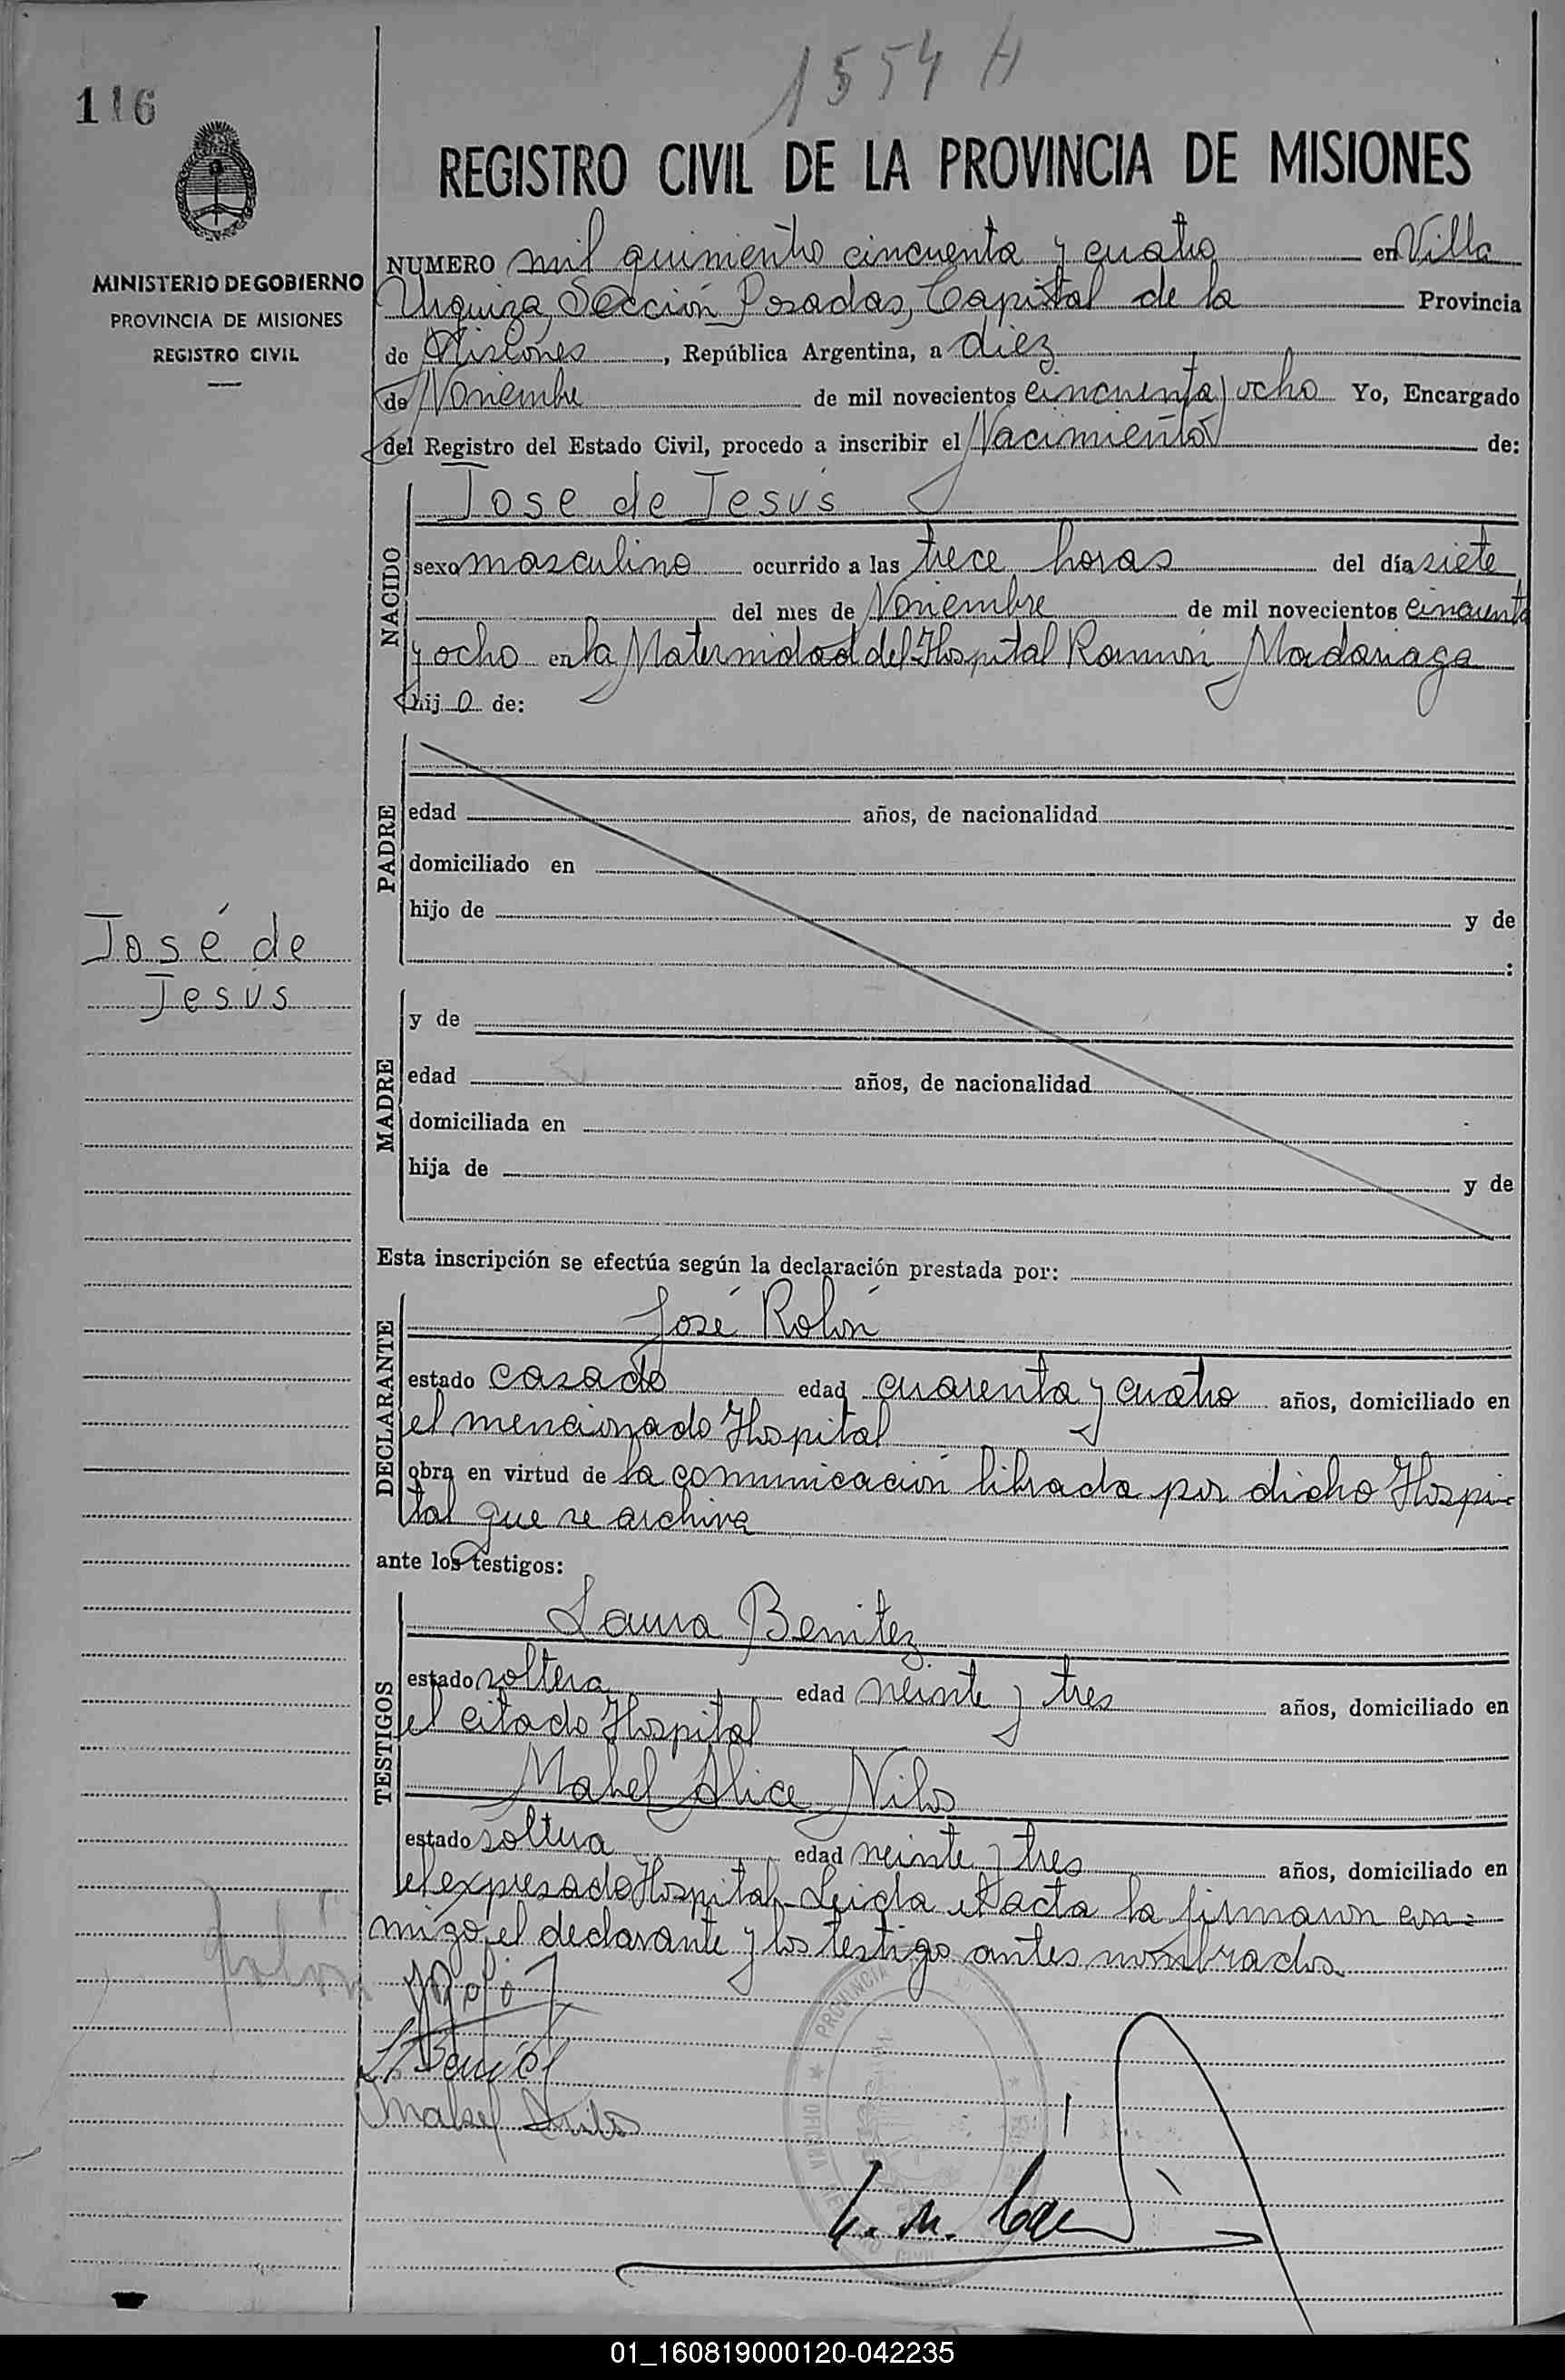 1554 H
116
REGISTRO CIVIL DE LA PROVINCIA DE MISIONES
MINISTERIO DE GOBIERNO
PROVINCIA DE MISIONES
REGISTRO CIVIL
NUMERO mil quinientos cincuenta y cuatro en Villa
Urquiza, Sección Posadas, Capital de la Provincia
de Misiones, República Argentina, a diez
de Noviembre de mil novecientos cincuenta y ocho Yo, Encargado
del Registro del Estado Civil, procedo a inscribir el Nacimiento de:
NACIDO
Jose de Jesús
sexo masculino ocurrido a las trece horas del día siete
del mes de Noviembre de mil novecientos cincuenta
y ocho en la Maternidad del Hospital Ramón Madariaga
hijo de:
PADRE
edad años, de nacionalidad
domiciliado en
hijo de y de
:
José de
Jesús
MADRE
y de
edad años, de nacionalidad
domiciliada en
hija de y de
Esta inscripción se efectúa según la declaración prestada por:
DECLARANTE
José Rolón
estado casado edad cuarenta y cuatro años, domiciliado en
el mencionado Hospital
obra en virtud de la comunicación librada por dicho Hospi-
tal que se archiva
ante los testigos:
TESTIGOS
Laura Benitez
estado soltera edad veinte y tres años, domiciliado en
el citado Hospital
Mabel Alice Nilos
estado soltera edad veinte y tres años, domiciliado en
el expresado Hospital. Leída el acta la firmaron con=
migo, el declarante y los testigos antes nombrados
PROVINCIA
01_160819000120-042235